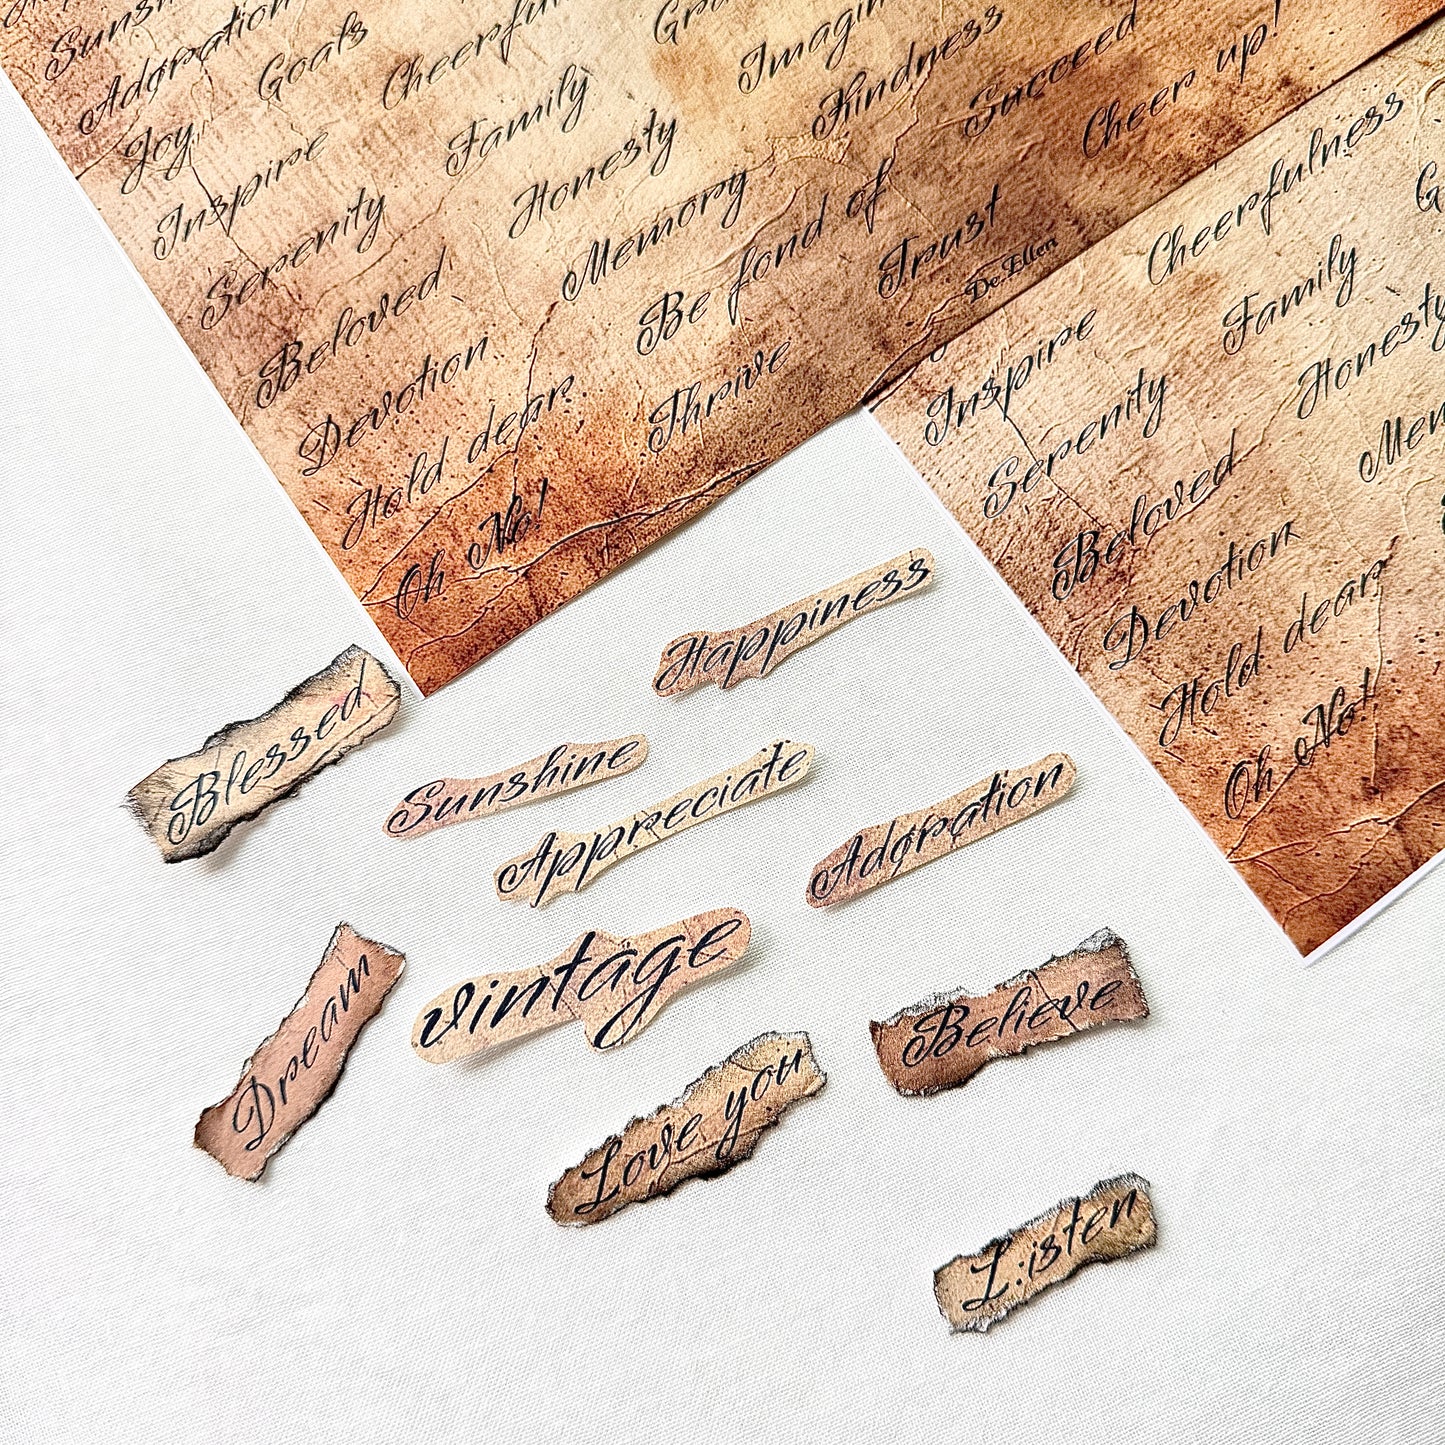 Sunshine
Adoration
Goals
Cheerful
Joy
Inspire
Family
Imagin
Kindness
Serenity
Honesty
Succeed
Beloved
Memory
Cheer up!
Devotion
Be fond of
Hold dear
Trust
Oh No!
Thrive
De.Ellen
Cheerfulness
Inspire
Family
Serenity
Honesty
Beloved
Mem
Devotion
Hold dear
Oh No!
Happiness
Blessed
Sunshine
Appreciate
Adoration
Dream
vintage
Believe
Love you
L:isten